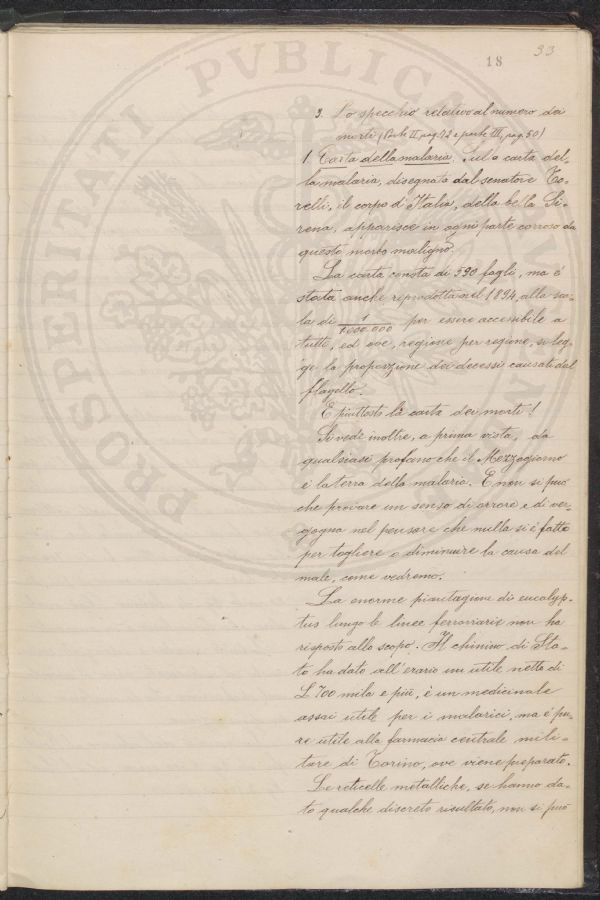 33
18
PROSPERITATI PVBLICAE
3. Lo specchio relativo al numero dei
morti (Parte II, pag. 42 e parte III, pag. 50)
1. Carta della malaria. Sulla carta del-
la malaria, disegnata dal senatore To-
relli, il corpo d'Italia, della bella Si-
rena, apparisce in ogni parte corroso da
questo morbo maligno.
La carta consta di 590 fogli, ma è
stata anche riprodotta nel 1894, alla sca-
la di 1/1.000.000 per essere accessibile a
tutti, ed ove, regione per regione, si leg-
ge la proporzione dei decessi causati dal
flagello.
È piuttosto la carta dei morti!
Si vede inoltre, a prima vista, da
qualsiasi profano che il Mezzogiorno
è la terra della malaria. E non si può
che provare un senso di orrore e di ver-
gogna nel pensare che nulla si è fatto
per togliere o diminuire la causa del
male, come vedremo.
La enorme piantagione di eucalyp-
tus lungo le linee ferroviarie non ha
risposto allo scopo. Il chinino di Sta-
to ha dato all'erario un utile netto di
L 700 mila e più, è un medicinale
assai utile per i malarici, ma è pu-
re utile alla farmacia centrale mili-
tare di Torino, ove viene preparato.
Le reticelle metalliche, se hanno da-
to qualche discreto risultato, non si può